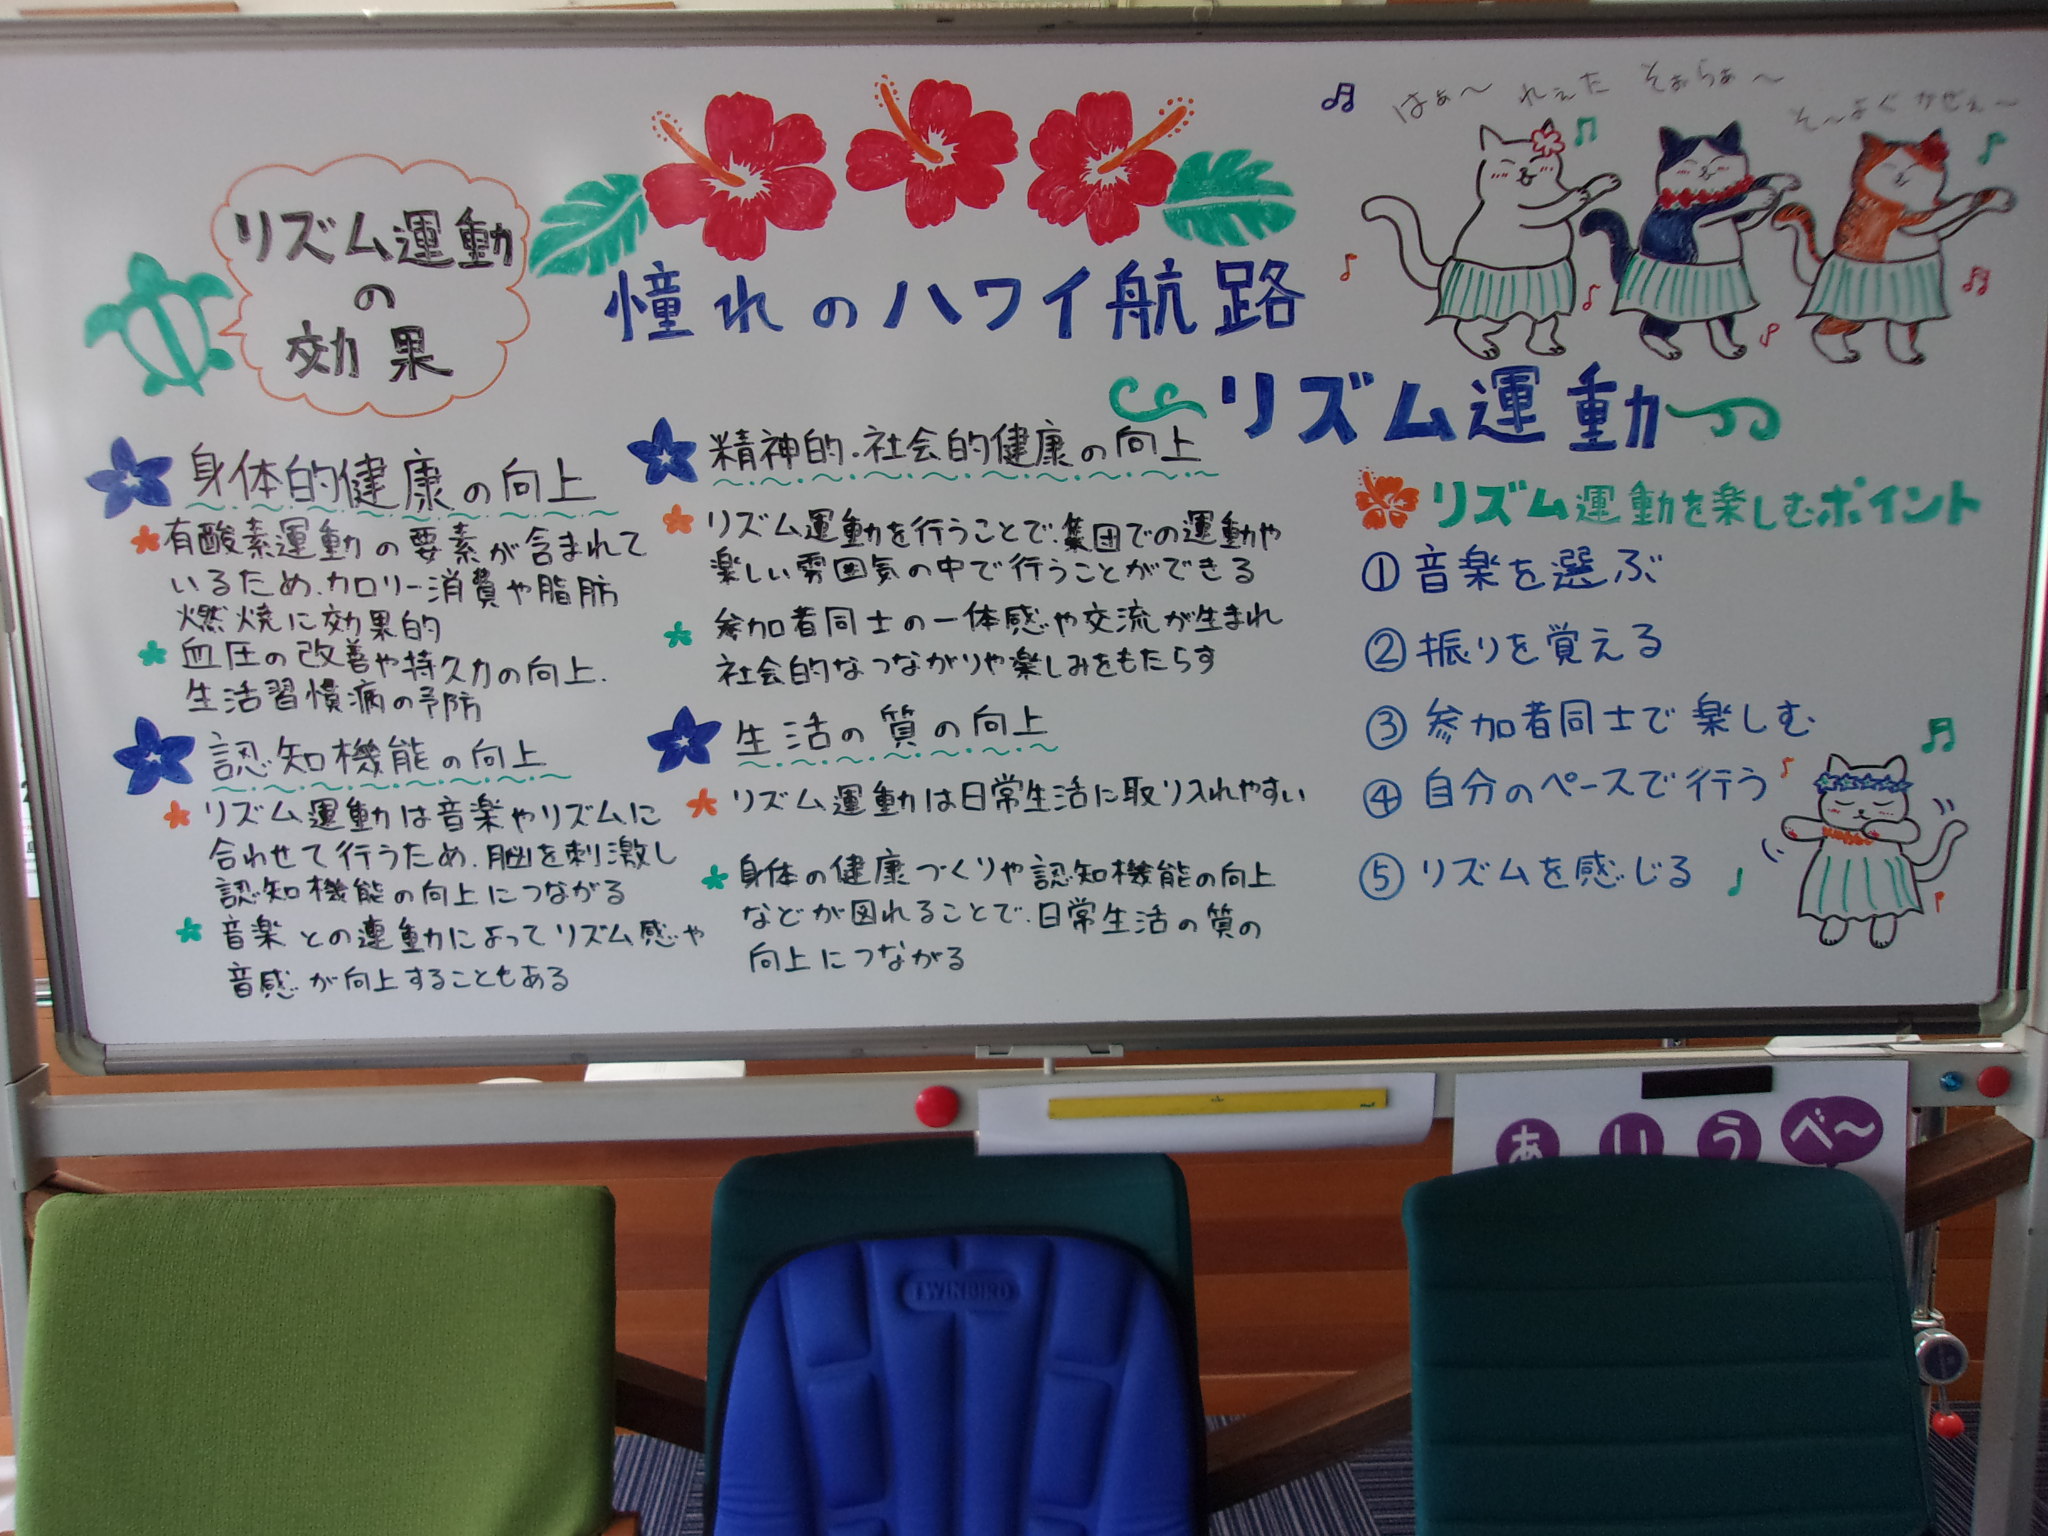 リズム運動
の
効果
憧れのハワイ航路
リズム運動
はぁ〜 れぇた そぉらぁ〜
そ〜よぐ かぜぇ〜
身体的健康の向上
有酸素運動の要素が含まれて
いるため、カロリー消費や脂肪
燃焼に効果的
血圧の改善や持久力の向上、
生活習慣病の予防
認知機能の向上
リズム運動は音楽やリズムに
合わせて行うため、脳を刺激し
認知機能の向上につながる
音楽との運動によってリズム感や
音感が向上することもある
精神的・社会的健康の向上
リズム運動を行うことで、集団での運動や
楽しい雰囲気の中で行うことができる
参加者同士の一体感や交流が生まれ
社会的なつながりや楽しみをもたらす
生活の質の向上
リズム運動は日常生活に取り入れやすい
身体の健康づくりや認知機能の向上
などが図れることで、日常生活の質の
向上につながる
リズム運動を楽しむポイント
①音楽を選ぶ
②振りを覚える
③参加者同士で楽しむ
④自分のペースで行う
⑤リズムを感じる
あ い う べ〜
TWINBIRD